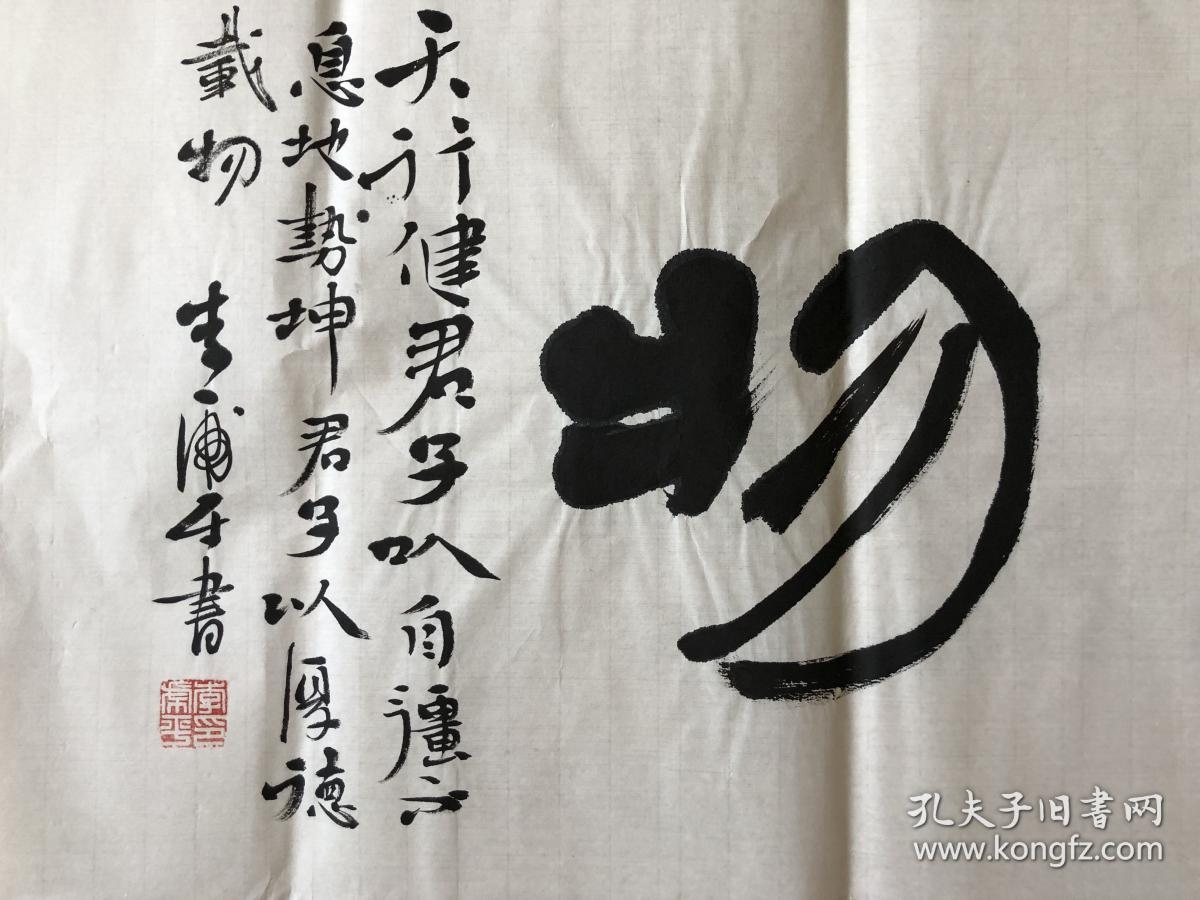 物
天行健君子以自彊不
息地势坤君子以厚德
載物 书
孔夫子旧书网
www.kongfz.com